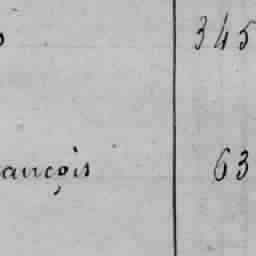 345
ançois 63